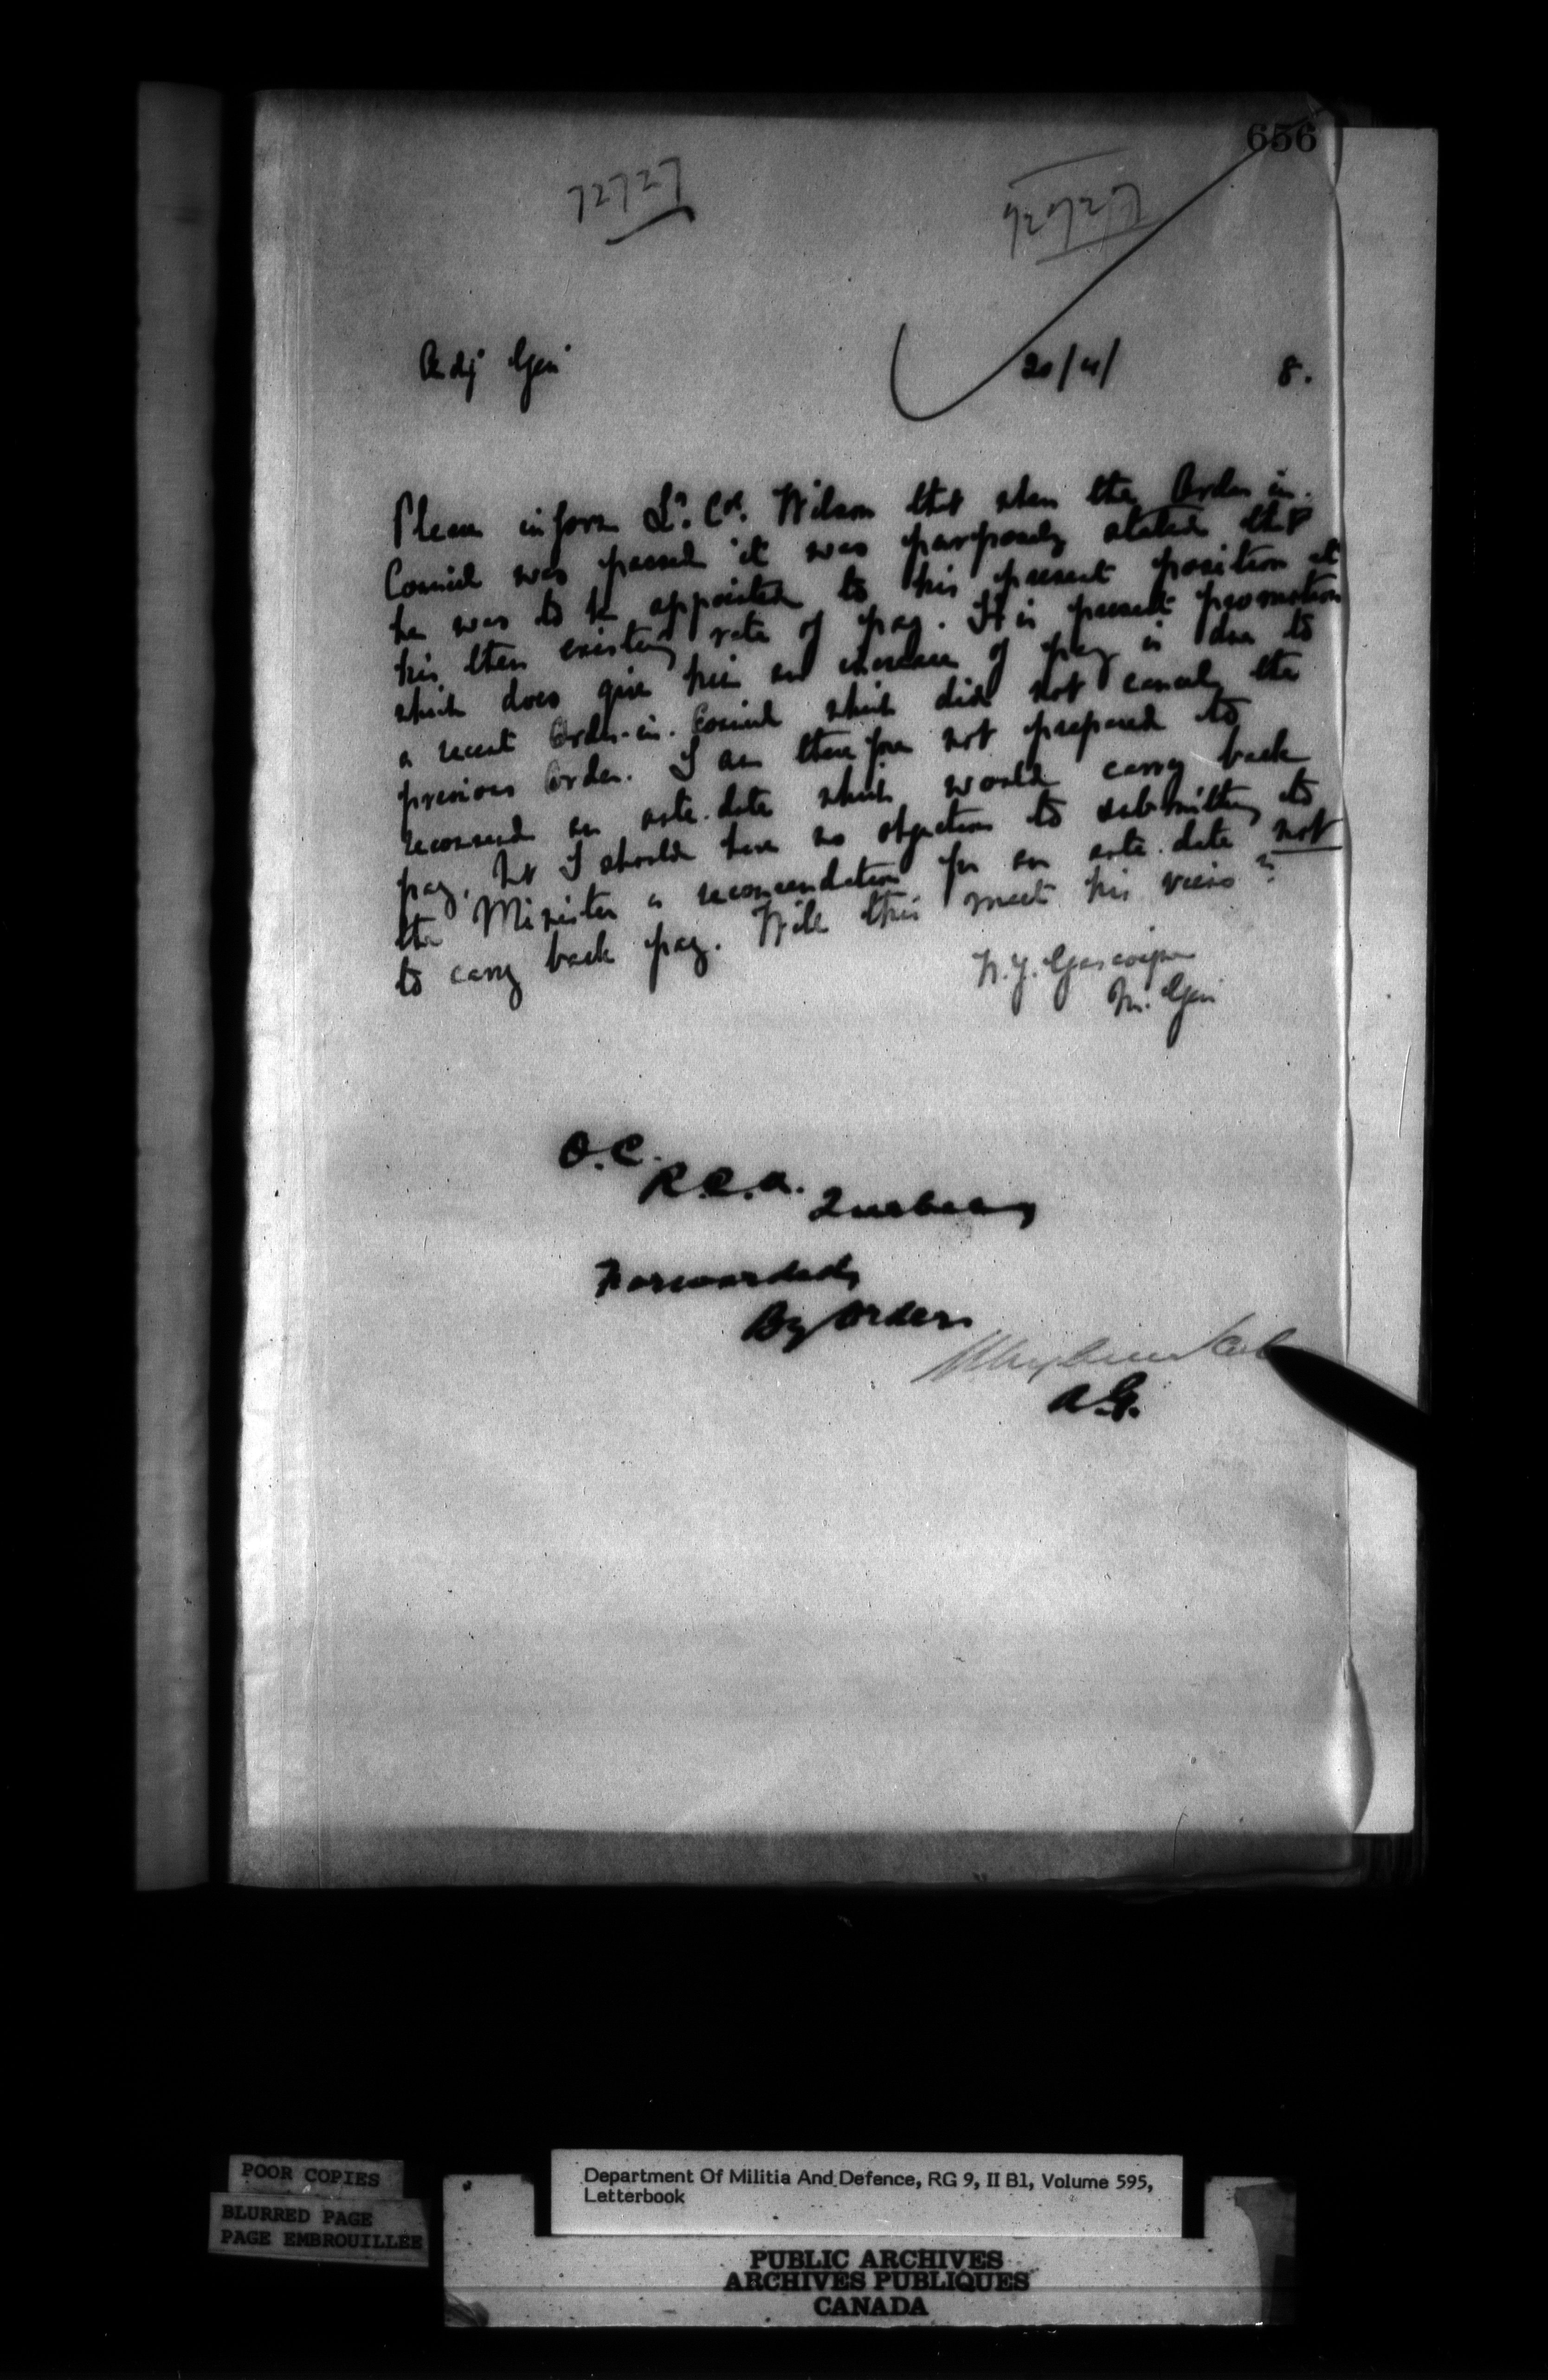 656
72727
72727
Adj Gen
20/4/ 8.
Please inform Lt. Col. Wilson that when the Order in.
Council was passed it was purposely stated that
he was to be appointed to his present position at
his then existing rate of pay. His present promotion
which does give him an increase of pay is due to
a recent Order-in-Council which did not cancel the
previous Order. I am therefore not prepared to
recommend an ante-date which would carry back
pay, but I should have no objection to submitting to
the Minister a recommendation for an ante-date not
to carry back pay. Will this meet his views?
W. J. Gascoigne
M. Gen
O.C.
R.C.A. Quebec
Forwarded,
By Order.
A.G.
POOR COPIES
BLURRED PAGE
PAGE EMBROUILLEE
Department Of Militia And Defence, RG 9, II B1, Volume 595,
Letterbook
PUBLIC ARCHIVES
ARCHIVES PUBLIQUES
CANADA